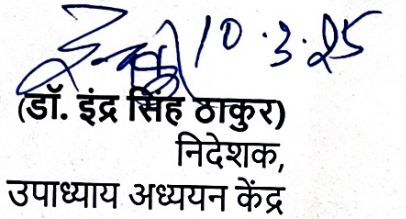 10.3.25
(डॉ. इंद्र सिंह ठाकुर)
निदेशक,
उपाध्याय अध्ययन केंद्र